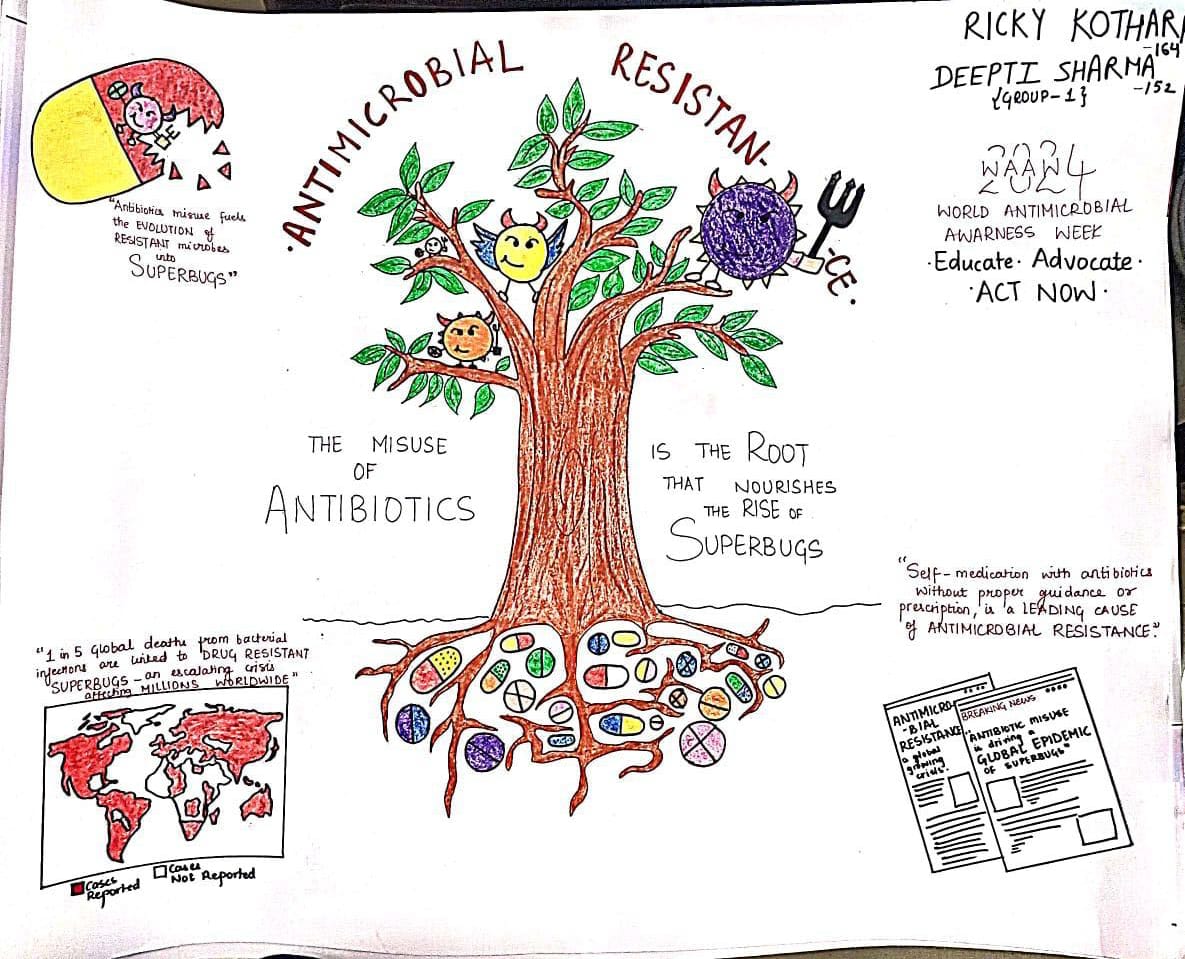 RICKY KOTHARI
-164
DEEPTI SHARMA
-152
{GROUP-1}
·ANTIMICROBIAL RESISTAN-
-CE·
"Antibiotics misuse fuels
the EVOLUTION of
RESISTANT microbes
into
SUPERBUGS"
WAAW
2024
WORLD ANTIMICROBIAL
AWARNESS WEEK
·Educate· Advocate·
·ACT NOW·
THE MISUSE
OF
ANTIBIOTICS
IS THE ROOT
THAT NOURISHES
THE RISE OF
SUPERBUGS
"Self-medication with antibiotics
without proper guidance or
prescription, is a LEADING CAUSE
of ANTIMICROBIAL RESISTANCE."
"1 in 5 Global deaths from bacterial
infections are linked to DRUG RESISTANT
SUPERBUGS - an escalating crisis
affecting MILLIONS WORLDWIDE"
Cases
Reported
Cases
Not Reported
ANTIMICRO-
-BIAL
RESISTANCE
a global
growing
crisis.
BREAKING NEWS
"ANTIBIOTIC MISUSE
is driving a
GLOBAL EPIDEMIC
OF SUPERBUGS"